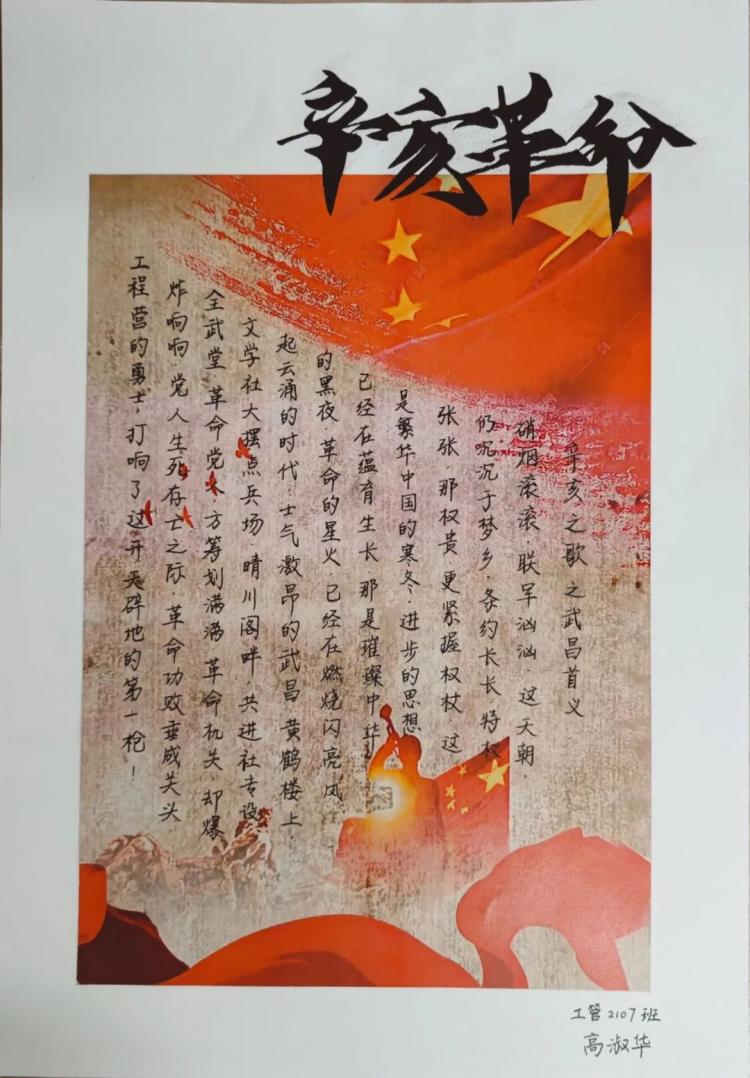 辛亥革命
辛亥之歌之武昌首义
硝烟滚滚，联军汹汹，这天朝
仍沉沉于梦乡，条约长长，特权
张张，那权贵，更紧握权杖，这
是繁华中国的寒冬，进步的思想
已经在蕴育生长，那是璀璨中华
的黑夜，革命的星火，已经在燃烧闪亮，风
起云涌的时代，士气激昂的武昌，黄鹤楼上，
文学社大摆点兵场，晴川阁畔，共进社专设
全武堂，革命党人，方筹划满满，革命机关，却爆
炸响响，党人生死存亡之际，革命功败垂成关头，
工程营的勇士，打响了这开天辟地的第一枪！
工管2107班
高淑华